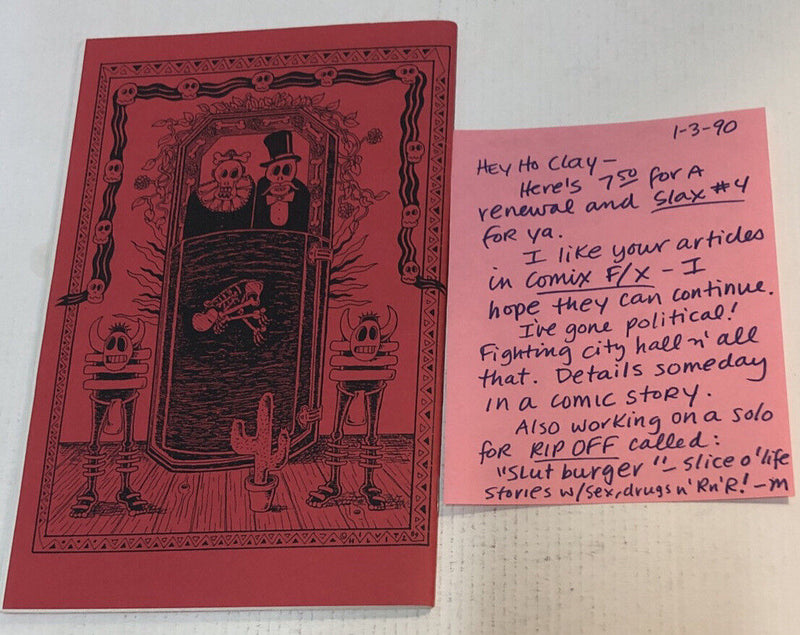 1-3-90
Hey Ho Clay—
Here's 7 50 for A
renewal and Slax #4
for ya.
I like your articles
in Comix F/X - I
hope they can continue.
I've gone political!
Fighting city hall n' all
that. Details someday
in a comic story.
Also working on a solo
for RIP OFF called:
"Slut burger" - slice o' life
stories w/sex, drugs n' Rn'R! -m